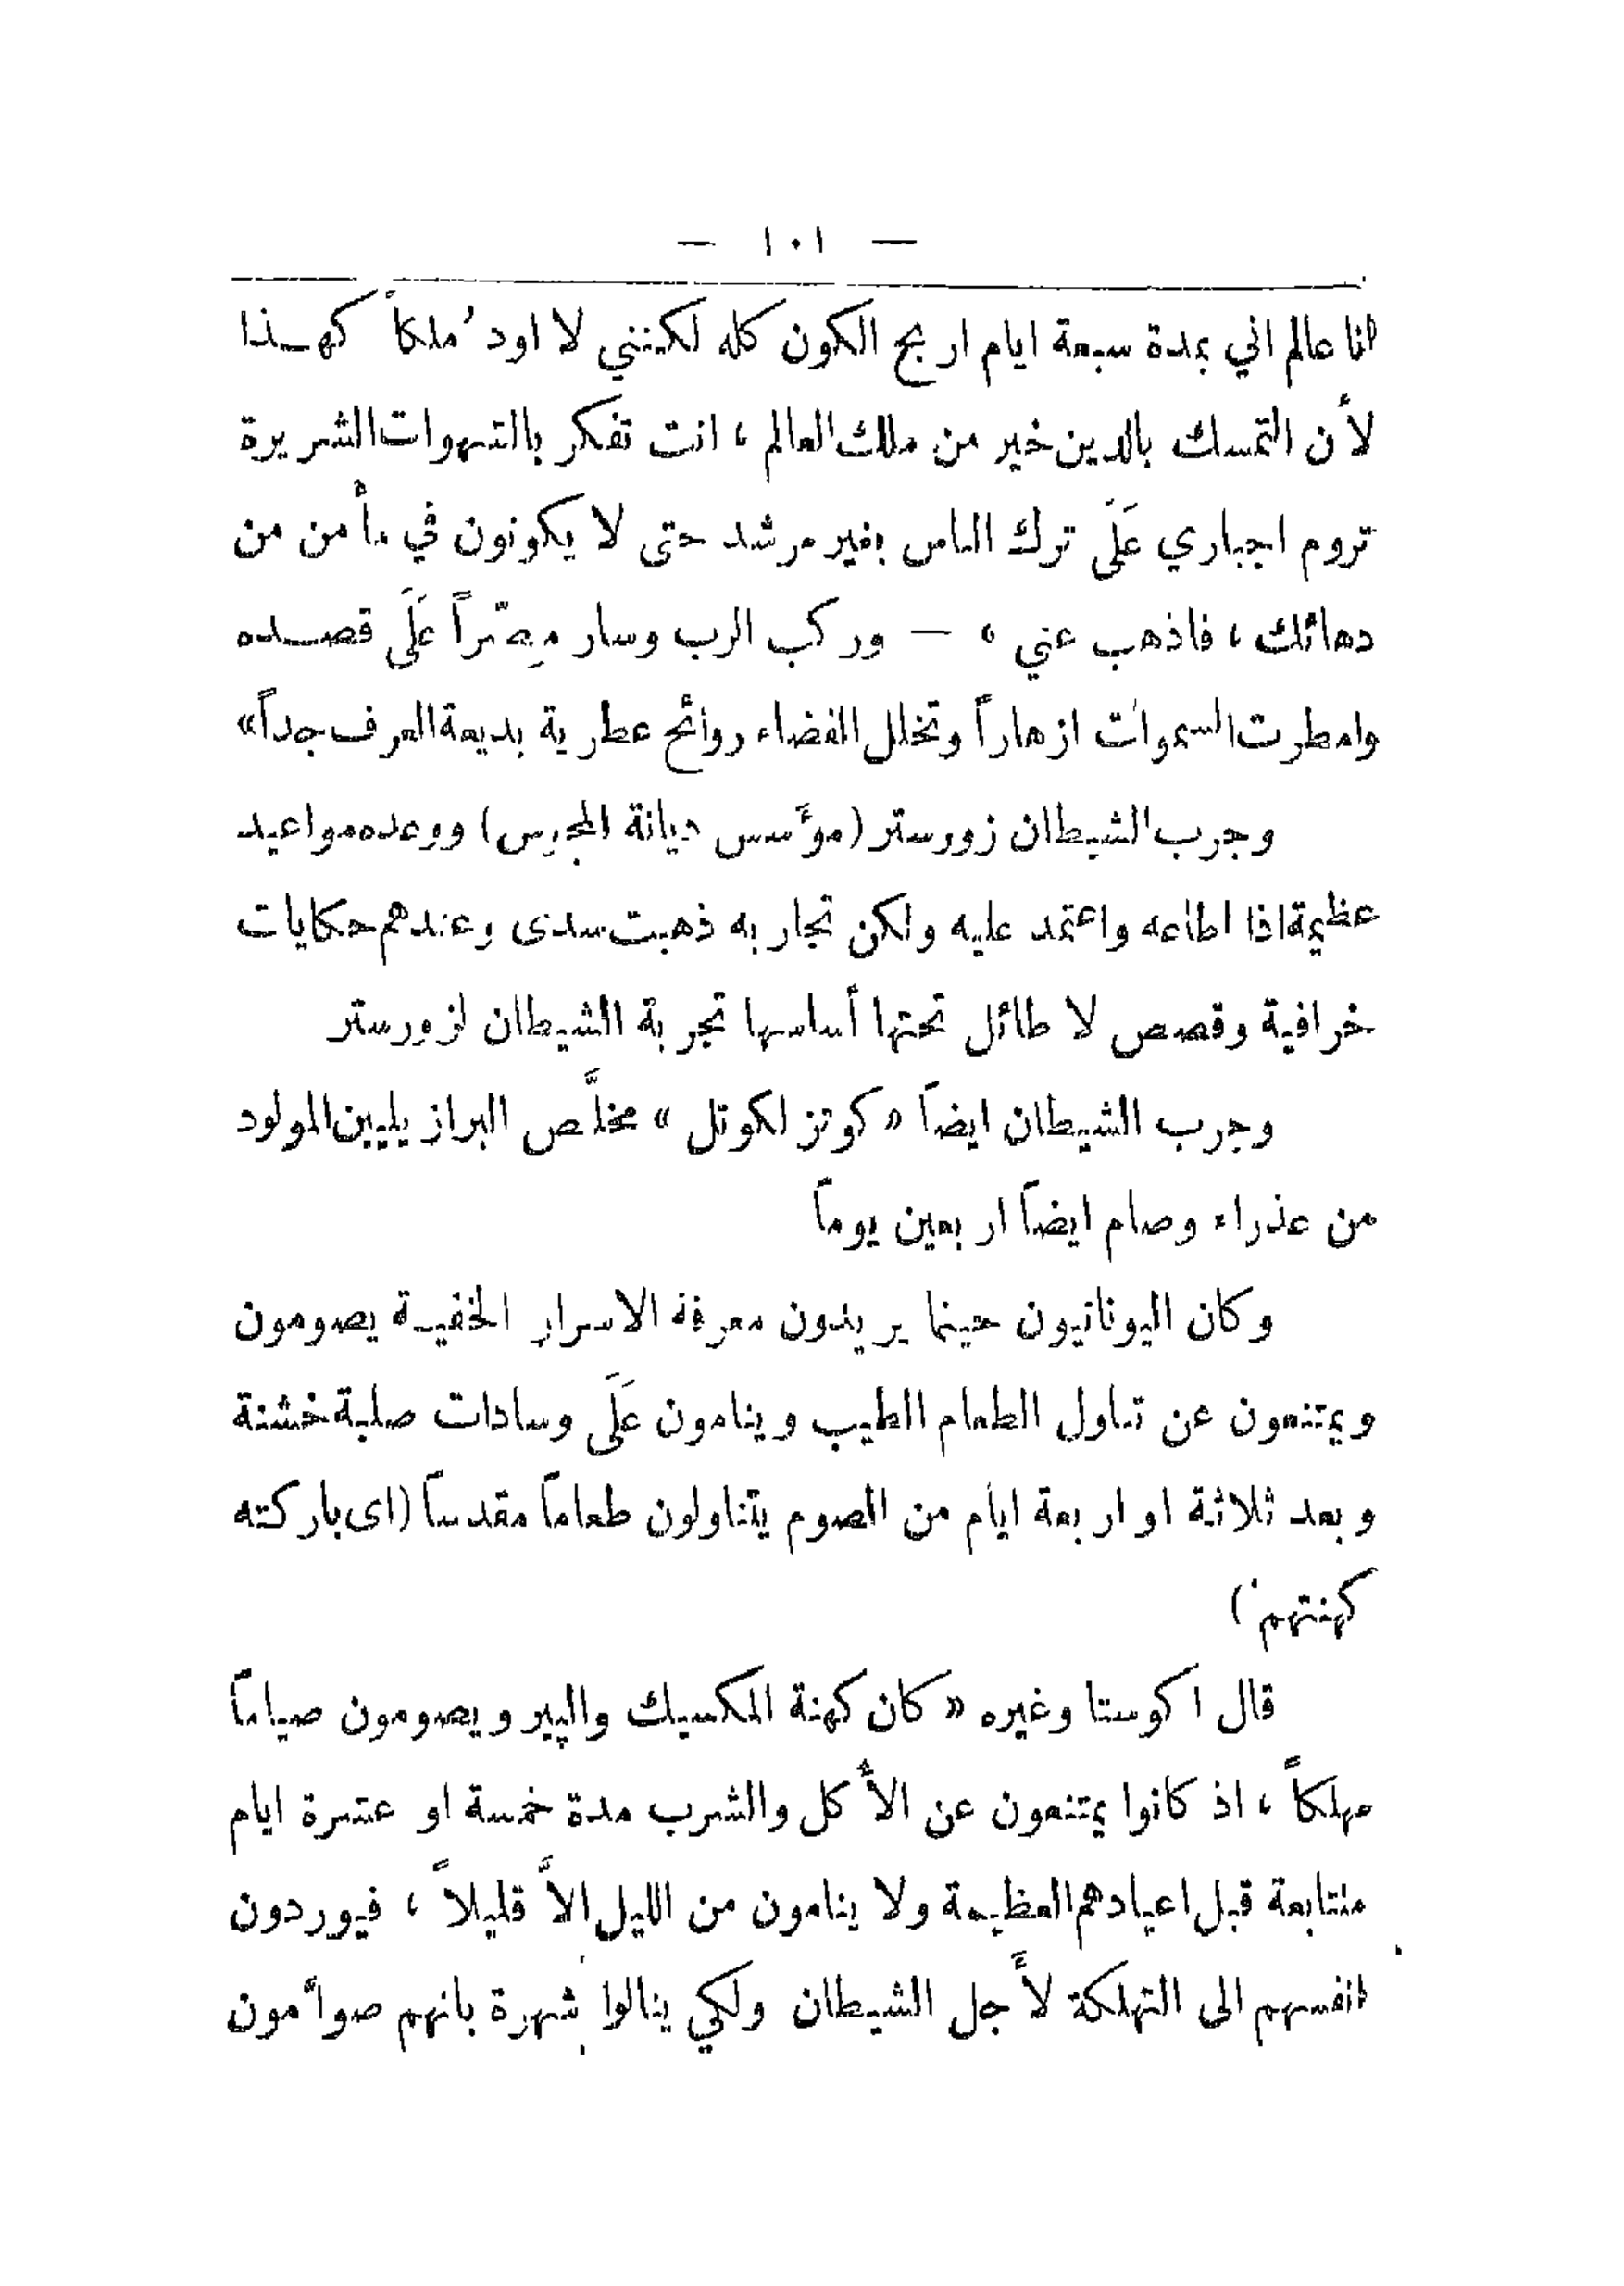 — ١٠١ —
انا عالم اني بمدة سبعة ايام اربح الكون كله لكنني لا اود ُملكاً كهـذا
لأن التمسك بالدين خير من ملك العالم ، انت تفكر بالشهوات الشريرة
تروم اجباري عَلَى ترك الناس بغير مرشد حتى لا يكونون في مأمن من
دهائك ، فاذهب عني ، — وركب الرب وسار مصّراً عَلَى قصـده
وامطرت السموات ازهاراً وتخلل الفضاء روائح عطرية بديعة العرف جداً»
وجرب الشيطان زورستر (مؤسس ديانة المجوس) ووعده مواعيد
عظيمة اذا اطاعه واعتمد عليه ولكن تجاربه ذهبت سدى وعندهم حكايات
خرافية وقصص لا طائل تحتها أساسها تجربة الشيطان لزورستر
وجرب الشيطان ايضاً « كوتز لكوتل » مخلَّص البرازيليين المولود
من عذراء وصام ايضاً اربعين يوماً
وكان اليونانيون حينما يريدون معرفة الاسرار الخفيـة يصومون
ويمتنعون عن تناول الطعام الطيب وينامون عَلَى وسادات صلبة خشنة
وبعد ثلاثة او اربعة ايام من الصوم يتناولون طعاماً مقدساً (اى باركته
كهنتهم)
قال اكوستا وغيره « كان كهنة المكسيك والپيرو يصومون صياماً
مهلكاً ، اذ كانوا يمتنعون عن الأكل والشرب مدة خمسة او عشرة ايام
متتابعة قبل اعيادهم العظيمة ولا ينامون من الليل الاَّ قليلاً ، فيوردون
انفسهم الى التهلكة لأجل الشيطان ولكي ينالوا شهرة بانهم صوامون